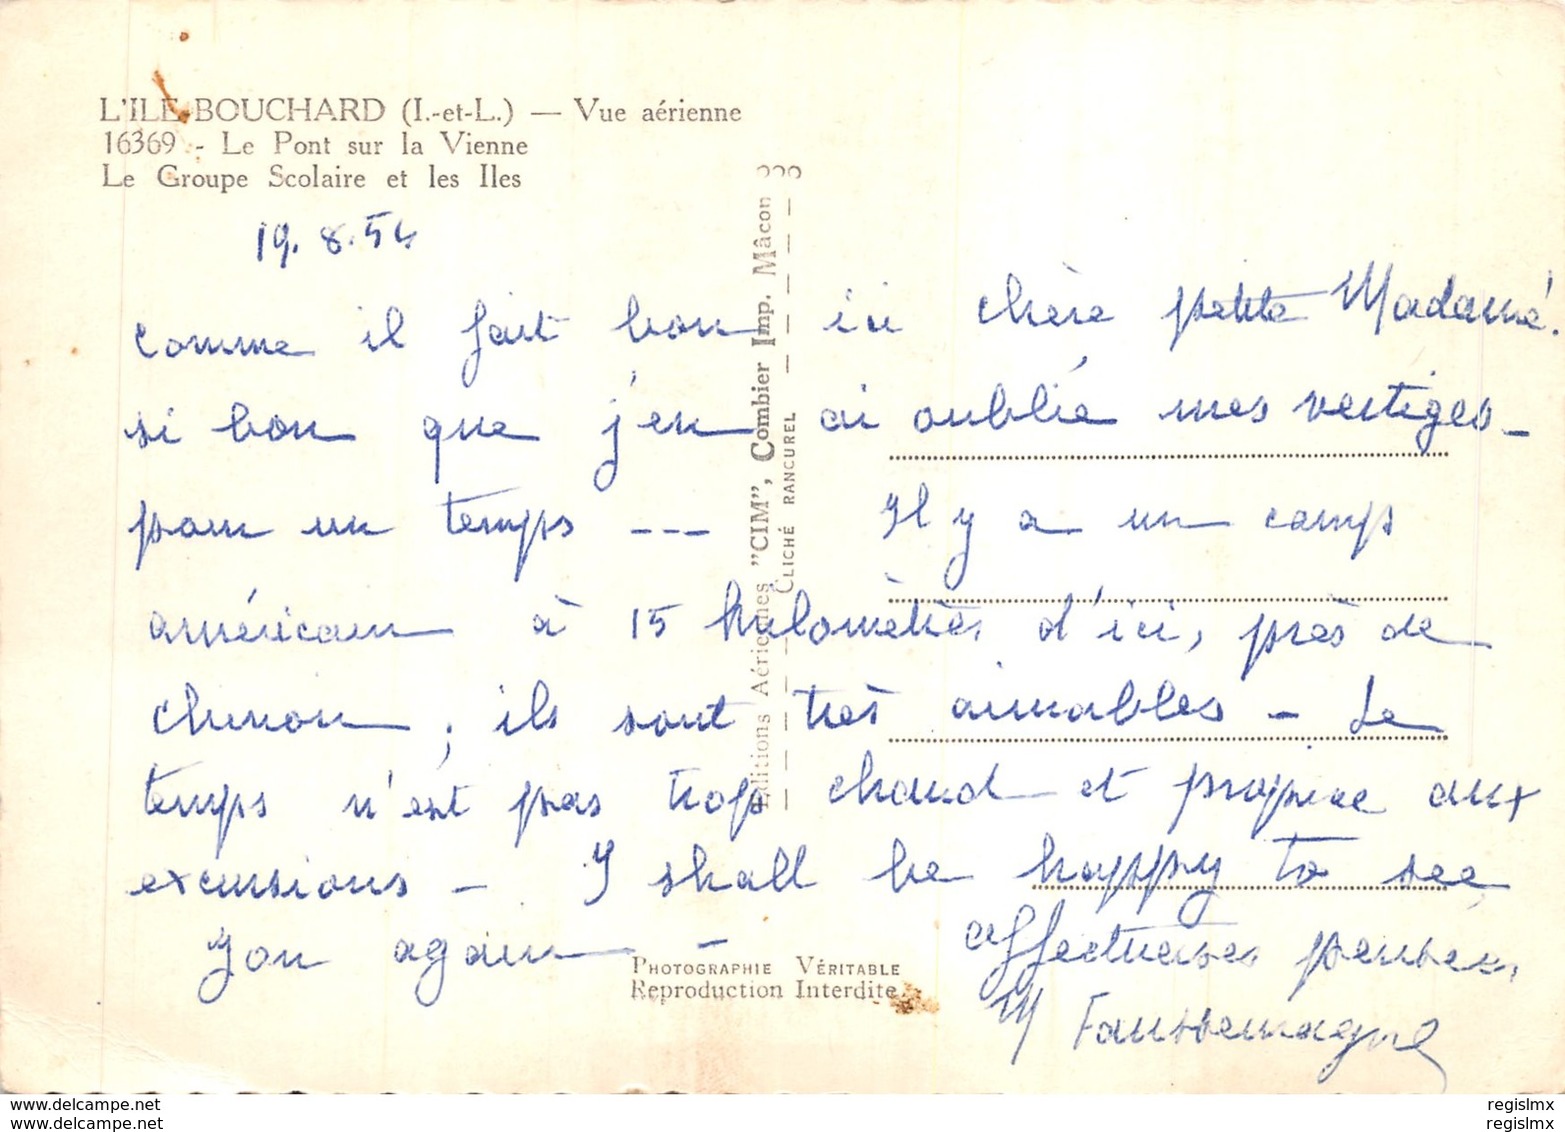 L'ILE-BOUCHARD (I.-et-L.) — Vue aérienne
16369 - Le Pont sur la Vienne
Le Groupe Scolaire et les Iles
19.8.54
comme il fait bon ici chère petite Madame.
si bon que j'en ai oublié mes vertiges -
pour un temps --- Il y a un camp
américain à 15 kilomètres d'ici, près de
chinon, ils sont très aimables - Le
temps n'est pas trop chaud et propice aux
excursions - I shall be happy to see
you again -
affectueuses pensées,
M Faussemagne
Editions Aériennes "CIM", Combier Imp. Mâcon
CLICHÉ RANCUREL
PHOTOGRAPHIE VÉRITABLE
Reproduction Interdite
www.delcampe.net
www.delcampe.net
regislmx
regislmx